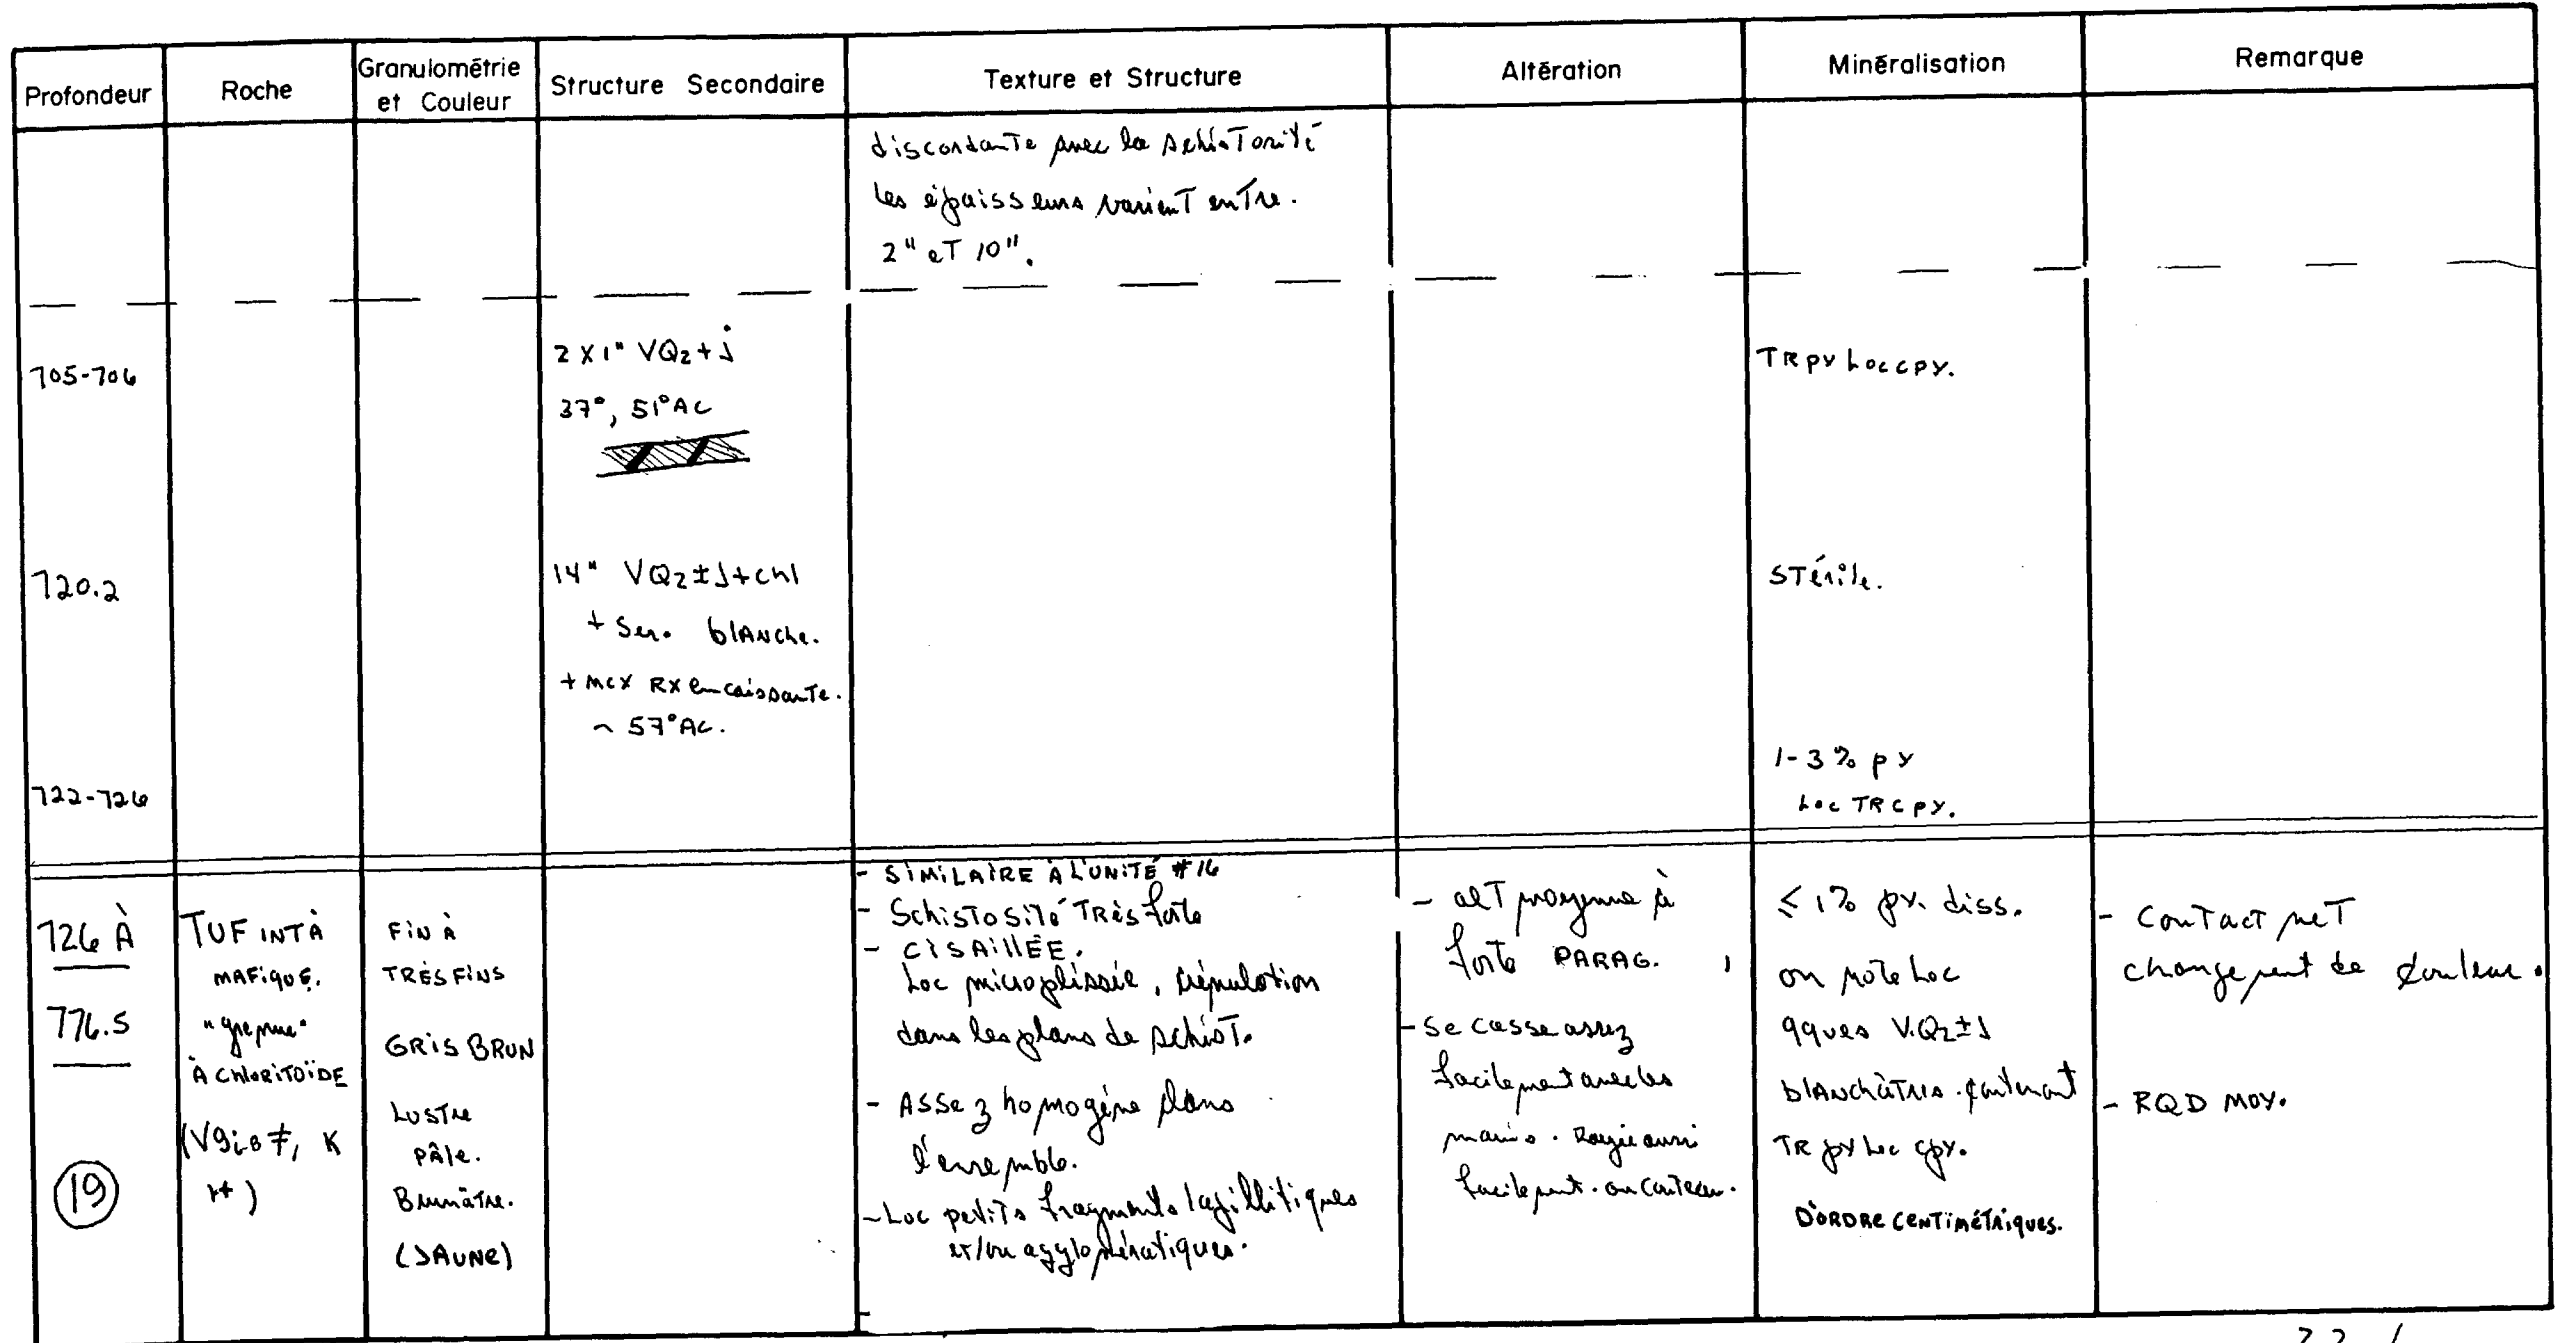 Profondeur
Roche
Granulométrie
et Couleur
Structure Secondaire
Texture et Structure
Altération
Minéralisation
Remarque
discordante avec la schistosité
les épaisseurs varient entre.
2" et 10".
705-706
2 X 1" VQz + J
37°, 51° AC
TR py Loc cpy.
720.2
14" VQz ± J + chl
+ Ser. blanche.
+ mcx RX encaissante.
~ 57° AC.
Stérile.
722-726
1-3% py
Loc TR cpy.
726 À
776.5
19
TUF INT À
MAFIQUE.
À CHLORITOÏDE
FIN À
TRÈS FINS
GRIS BRUN
LUSTRE
PÂLE.
Brunâtre.
(JAUNE)
- SIMILAIRE À L'UNITÉ #16
- Schistosité Très forte
- CISAILLÉE.
Loc microplissée, crénulation
dans les plans de schist.
- Assez homogène dans
l'ensemble.
- Loc petits fragments lapillitiques
et/ou agglomératiques.
- alt moyenne à
forte PARAG.
- Se casse assez
facilement avec les
mains. Rayie aussi
facilement. au couteau.
≤ 1% py. diss.
on note Loc
qques V.Qz ± J
blanchâtres. contenant
TR py Loc cpy.
D'ORDRE CENTIMÉTRIQUES.
- Contact net
changement de couleur.
- RQD MOY.